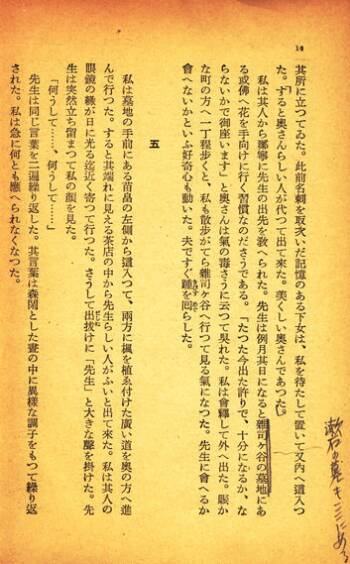 10
其所に立つてゐた。此前名刺を取次いだ記憶のある下女は、私を待たして置いて又內へ這入つ
た。すると奥さんらしい人が代つて出て來た。美くしい奥さんであつた。
私は其人から鄭寧に先生の出先を敎へられた。先生は例月其日になると雜司ケ谷の墓地にあ
る或佛へ花を手向けに行く習慣なのださうである。「たつた今出た許りで、十分になるか、な
らないかで御座います」と奥さんは氣の毒さうに云つて吳れた。私は會釋して外へ出た。賑か
な町の方へ一丁程步くと、私も散步がてら雜司ケ谷へ行つて見る氣になつた。先生に會へるか
會へないかといふ好奇心も動いた。夫ですぐ踵を囘らした。
五
私は墓地の手前にある苗畠の左側から這入つて、兩方に楓を植ゑ付けた廣い道を奥の方へ進
んで行つた。すると其端れに見える茶店の中から先生らしい人がふいと出て來た。私は其人の
眼鏡の緣が日に光る迄近く寄つて行つた。さうして出拔けに「先生」と大きな聲を掛けた。先
生は突然立ち留まつて私の顏を見た。
「何うして……、何うして……」
先生は同じ言葉を二遍繰り返した。其言葉は森閑とした晝の中に異樣な調子をもつて繰り返
された。私は急に何とも應へられなくなつた。
漱石の墓もここにある